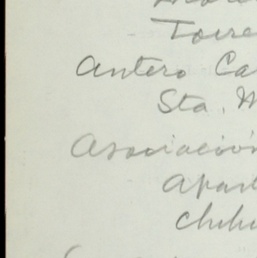 Torre
Antero Ca
Sta. M
Asociación
Apart
Chihu